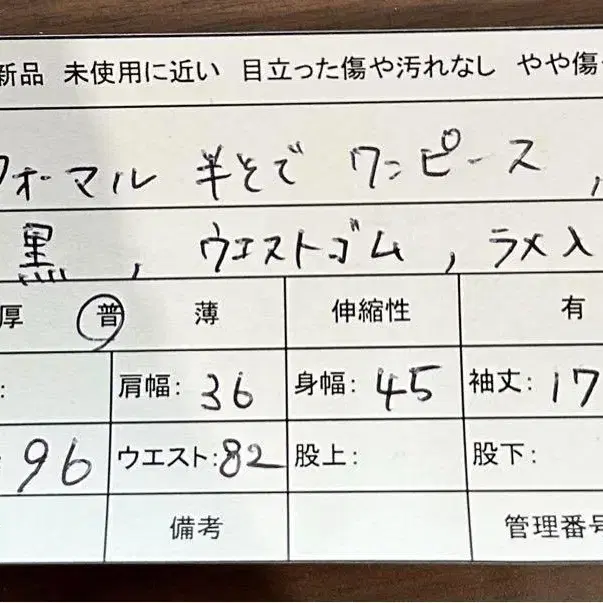 新品 未使用に近い 目立った傷や汚れなし やや傷
フォーマル 半そで ワンピース ,
黒 , ウエストゴム , ラメ入
厚 普 薄 伸縮性 有
: 肩幅: 36 身幅: 45 袖丈: 17
: 96 ウエスト: 82 股上: 股下:
備考 管理番号